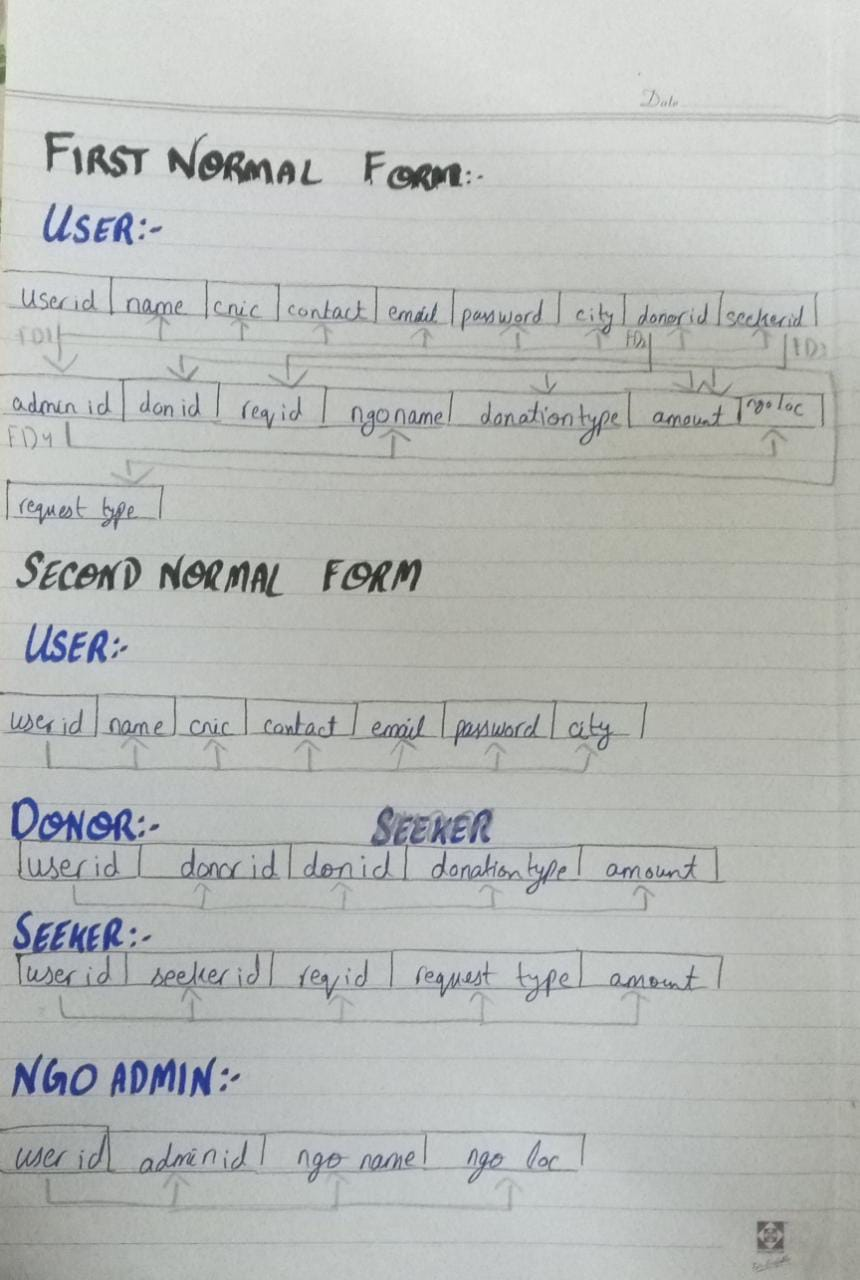 Date
FIRST NORMAL FORM:-
USER:-
user id name cnic contact email password city donor id seeker id
FD1 FD2 FD3
admin id don id req id ngo name donation type amount ngo loc
FD4
request type
SECOND NORMAL FORM
USER:-
user id name cnic contact email password city
DONOR:- SEEKER
user id donor id don id donation type amount
SEEKER:-
user id seeker id req id request type amount
NGO ADMIN:-
user id admin id ngo name ngo loc